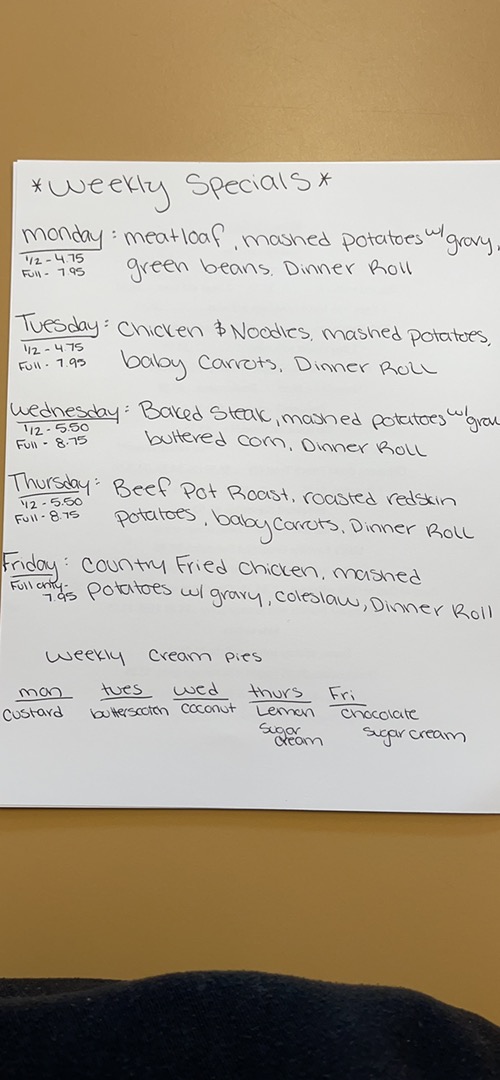 *Weekly Specials*
Monday: meatloaf, mashed potatoes w/ gravy,
1/2 - 4.75
Full - 7.95
green beans, Dinner Roll
Tuesday: Chicken & Noodles, mashed potatoes,
1/2 - 4.75
Full - 7.95
baby Carrots, Dinner Roll
Wednesday: Baked Steak, mashed potatoes w/ grav
1/2 - 5.50
Full - 8.75
buttered corn, Dinner Roll
Thursday: Beef Pot Roast, roasted redskin
1/2 - 5.50
Full - 8.75
potatoes, baby carrots, Dinner Roll
Friday: Country Fried Chicken, mashed
Full only -
7.95
potatoes w/ gravy, coleslaw, Dinner Roll
Weekly Cream pies
mon tues wed thurs Fri
custard butterscotch coconut Lemon chocolate
sugar cream sugar cream